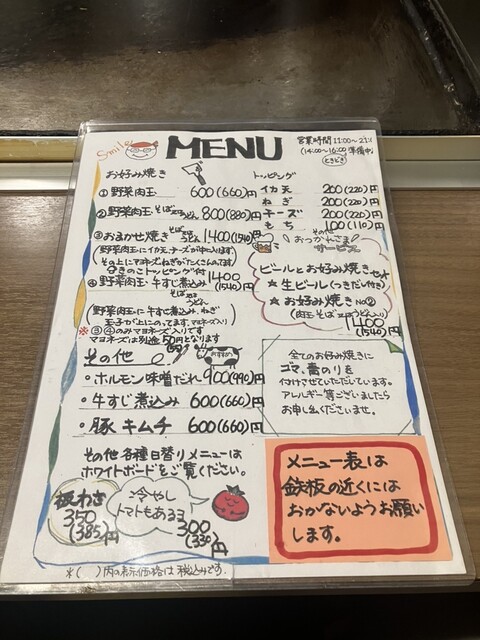 Smile
MENU
営業時間 11:00〜21:
(14:00〜16:00 準備中)
ときどき
お好み焼き
① 野菜肉玉 600(660)円
② 野菜肉玉 そば又はうどん 800(880)円
③ おまかせ焼き そば又はうどん 1400(1540)円
(野菜肉玉にイカ天、チーズが中に入ります)
その上にマヨネーズねぎがたくさんのってます
④ 野菜肉玉 牛すじ煮込み 1400(1540)円
そば又はうどん
(野菜肉玉に牛すじ煮込み、ねぎ
玉子が上にのってます。マヨネーズ入り)
※③④のみマヨネーズ入りです
マヨネーズは別途50円となります
トッピング
イカ天 200(220)円
ねぎ 200(220)円
チーズ 200(220)円
もち 100(110)円
その他
おつかれさま
サービス
ビールとお好み焼きセット
☆ 生ビール(つきだし付き)
☆ お好み焼き No②
(肉玉そば又はうどん入り)
1400(1540)円
その他
おすすめ
・ホルモン味噌だれ 900(990)円
・牛すじ煮込み 600(660)円
・豚キムチ 600(660)円
全てのお好み焼きに
ゴマ、青のりを
付けさせていただいています。
アレルギー等ございましたら
お申し付けくださいませ。
その他各種日替りメニューは
ホワイトボードをご覧ください。
板わさ
350
(385)円
冷やし
トマトもあるヨ
300
(330)円
メニュー表は
鉄板の近くには
おかないようお願い
します。
*( )内の表示価格は税込みです.